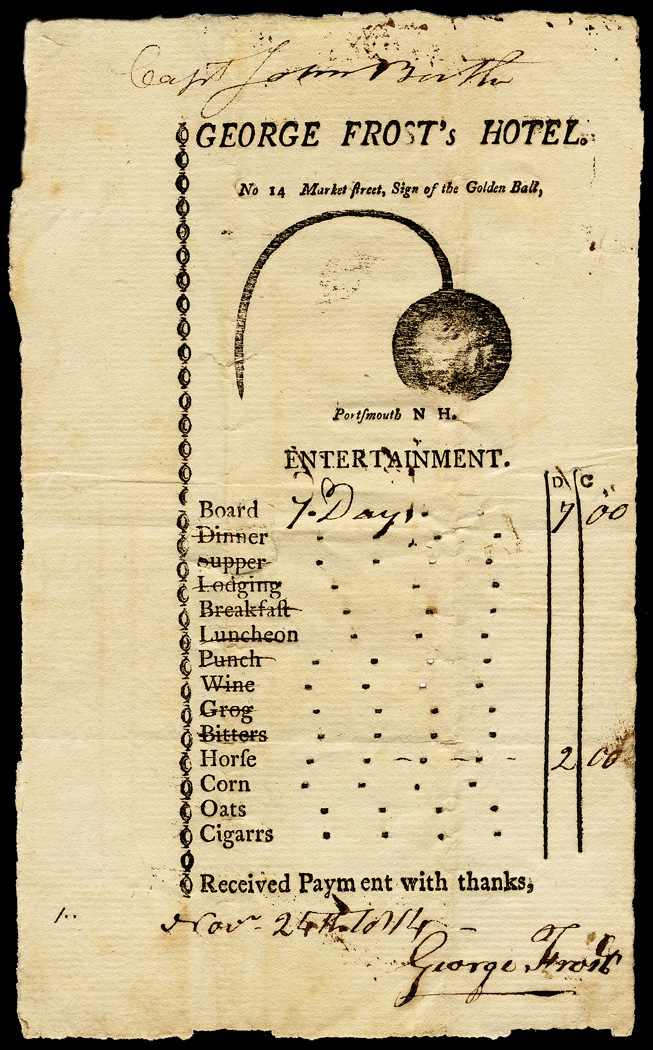 Capt John
GEORGE FROST's HOTEL.
No 14 Market ſtreet, Sign of the Golden Ball,
Portſmouth N H.
ENTERTAINMENT.
D C
Board 7 Days 7 00
Dinner
Supper
Lodging
Breakfaſt
Luncheon
Punch
Wine
Grog
Bitters
Horſe 2 00
Corn
Oats
Cigarrs
Received Payment with thanks,
Novr 24th 1814
George Frost